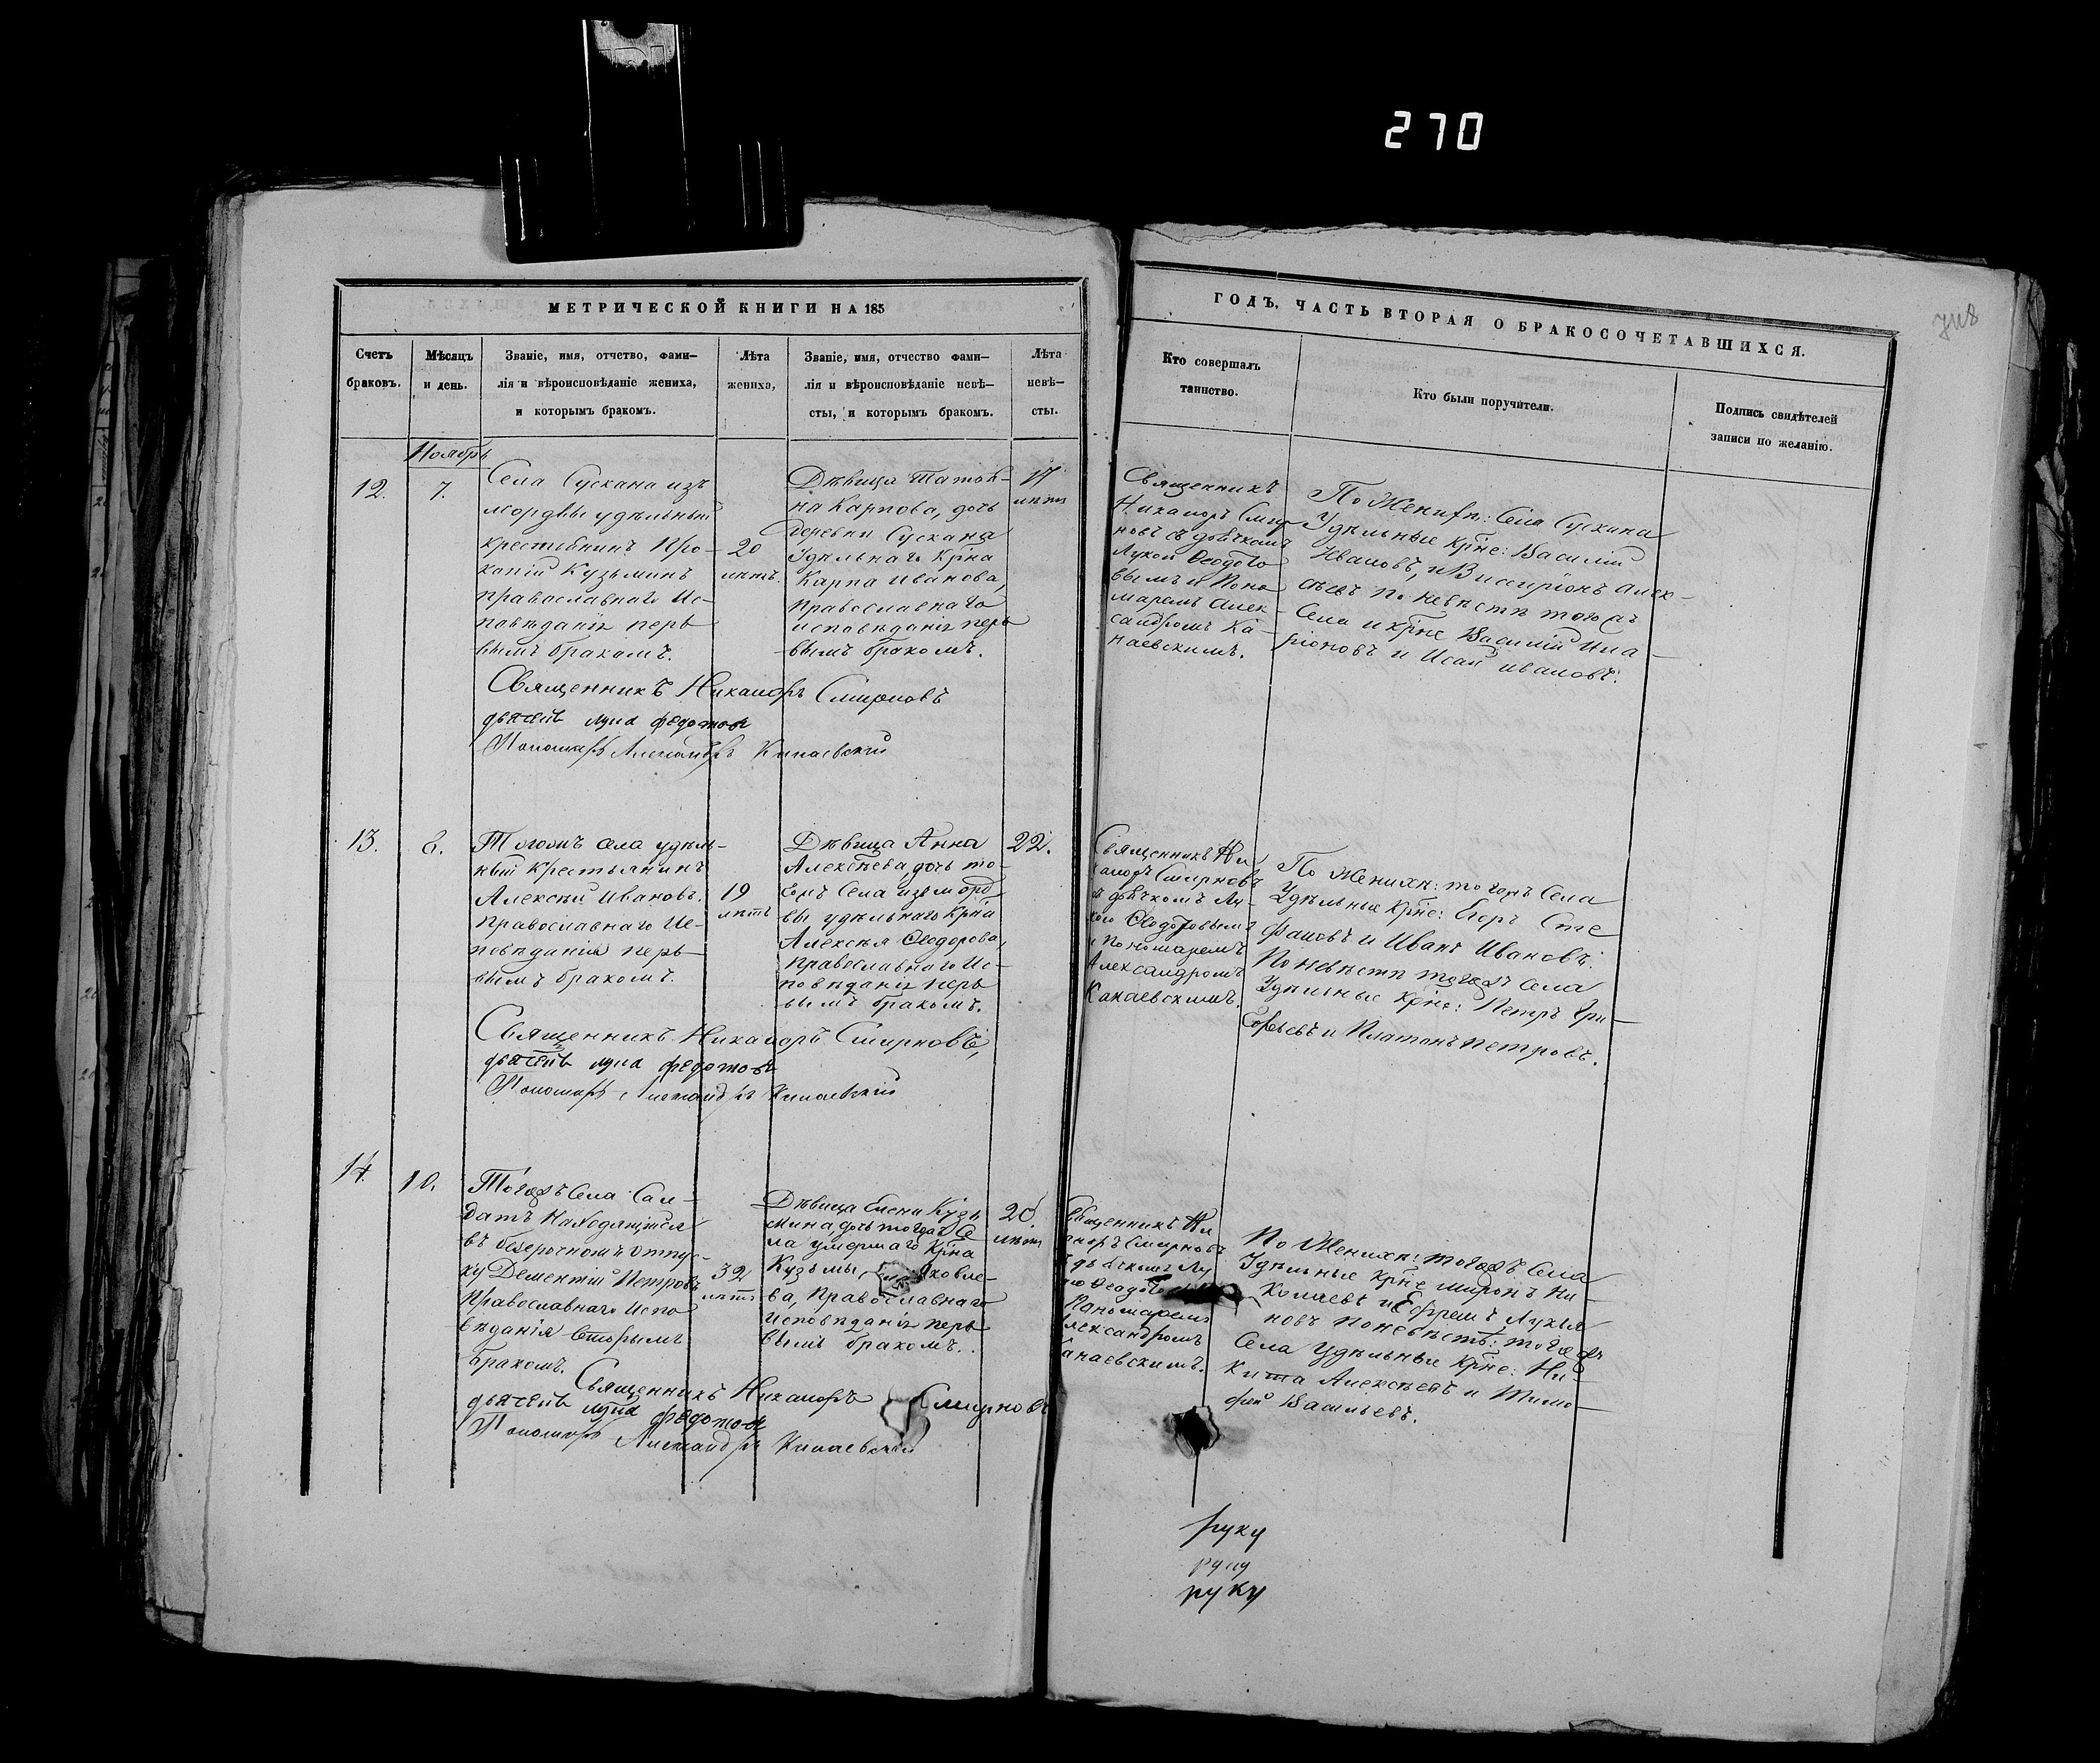 270
МЕТРИЧЕСКОЙ КНИГИ НА 185
ГОДЪ. ЧАСТЬ ВТОРАЯ О БРАКОСОЧЕТАВШИХСЯ.
Счетъ
браковъ.
Мѣсяцъ
и день.
Званіе, имя, отчетво, фами—
лія и вѣроисповѣданіе жениха,
и которымъ бракомъ.
Лѣта
жениха,
Званіе, имя, отчество фами—
лія и вѣроисповѣданіе невѣ—
сты, и которымъ бракомъ.
Лѣта
невѣ—
сты.
Кто совершалъ
таинство.
Кто были поручители.
Подпись свидѣтелей
записи по желанію.
Ноябрь
12.
7.
Села Сускана изъ
мордвы удѣльный
крестьянинъ Про-
копій Кузьминъ
православнаго Ис-
повѣданія пер
вымъ бракомъ.
20
лѣтъ.
Дѣвица Татья-
на Карпова, дочь
деревни Сускана
Удѣльнаго Крна
Карпа Иванова,
православнаго
исповѣданія пер
вымъ бракомъ.
17
лѣтъ
Священникъ
Никаноръ Смир
новъ съ дьячкомъ
Лукой Ѳеодото
вымъ и Поно
маремъ Алек-
сандромъ Ка-
наевскимъ.
По Женихѣ: Села Сускана
Удѣльные крне: Василій
Ивановъ, и Виссаріонъ Алек-
сѣевъ по невѣстѣ того жъ
Села и крне Василій Ила-
ріоновъ и Исай Ивановъ.
Священникъ Никаноръ Смирновъ
дьячекъ лука федотовъ
Пономарь Александръ Канаевскій
13.
8.
Тогожъ села удѣль-
ный Крестьянинъ
Алексѣй Ивановъ.
Православнаго Ис-
повѣданія пер-
вымъ бракомъ.
19
лѣтъ
Дѣвица Анна
Алексѣева, дочь то-
гожъ Села изъ морд
вы удѣльнаго Крна
Алексѣя Ѳеодорова,
православнаго Ис-
повѣданія пер
вымъ бракомъ.
22.
Священникъ Ни
каноръ Смирновъ
съ дьячкомъ Лу-
кою Ѳеодотовымъ
и Пономаремъ
Александромъ
Канаевскимъ.
По Женихѣ: тогожъ Села
Удѣльные Крне: Егоръ Сте
фановъ и Иванъ Ивановъ.
По невѣстѣ тогожъ Села
Удѣльные Крне: Петръ Гри-
горьевъ и Платонъ Петровъ.
Священникъ Никаноръ Смирновъ,
дьячекъ лука федотовъ
Пономарь Александръ Канаевскій
14.
10.
Тогожъ Села Сол-
датъ находящійся
въ безсрочномъ отпус-
ку Дементій Петровъ
Православнаго Испо
вѣданія вторымъ
Бракомъ.
32
лѣтъ
Дѣвица Елена Кузь
мина, дочь тогожъ Се
ла умершаго Крна
Кузьмы Яковле-
ва, православнаго
Исповѣданія пер
вымъ бракомъ.
20.
лѣтъ
Священникъ Ни
каноръ Смирновъ
съ дьячкомъ Лу
кою
Пономаремъ
Александромъ
Канаевскимъ.
По Женихѣ: тогожъ Села
Удѣльные Крне Миронъ Ни-
колаевъ и Ефремъ Лукья
новъ по невѣстѣ: тогожъ
Села Удѣльные Крне: Ни-
кита Алексѣевъ и Тимо-
фей Васильевъ.
Священникъ Никаноръ Смирновъ
дьячекъ лука федотовъ
Пономарь Александръ Канаевскій
руку
руку
руку